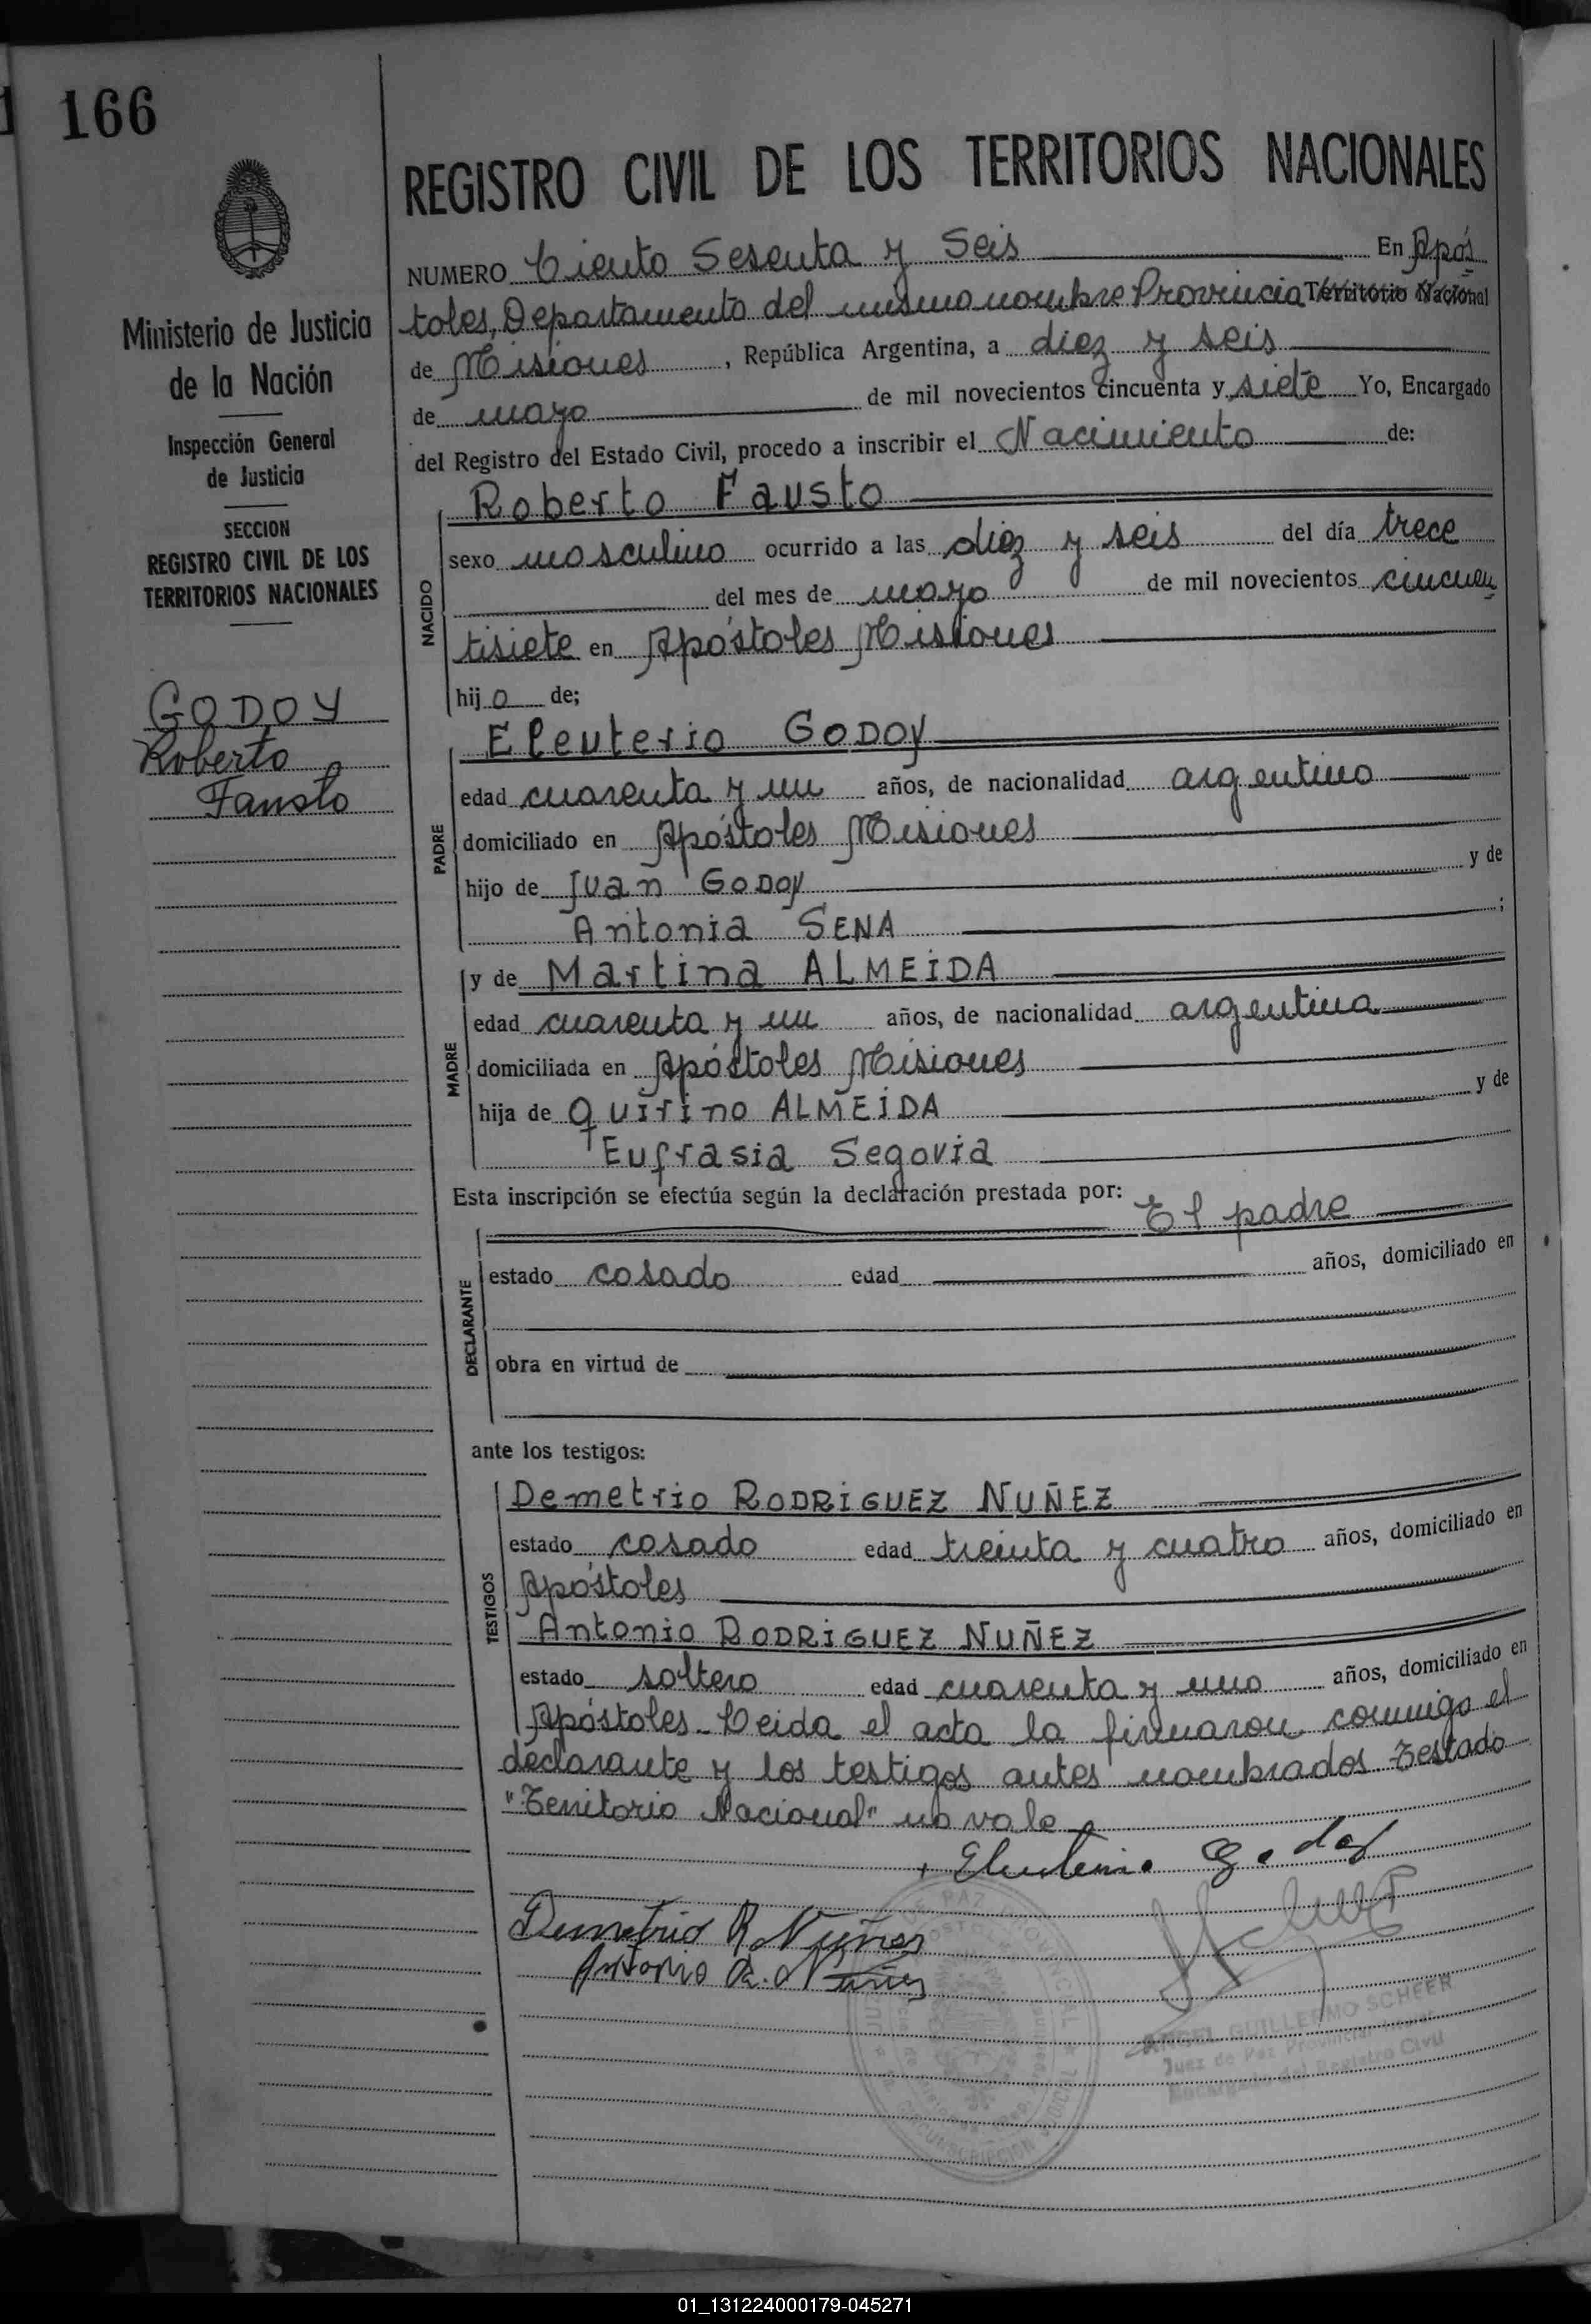 166
REGISTRO CIVIL DE LOS TERRITORIOS NACIONALES
NUMERO Ciento Sesenta y Seis En Após
toles, Departamento del mismo nombre Provincia Territorio Nacional
de Misiones, República Argentina, a diez y seis
de mayo de mil novecientos cincuenta y siete Yo, Encargado
del Registro del Estado Civil, procedo a inscribir el Nacimiento de:
Ministerio de Justicia
de la Nación
Inspección General
de Justicia
SECCION
REGISTRO CIVIL DE LOS
TERRITORIOS NACIONALES
GODOY
Roberto
Fausto
NACIDO
Roberto Fausto
sexo masculino ocurrido a las diez y seis del día trece
del mes de mayo de mil novecientos cincuen
tisiete en Apóstoles Misiones
hijo de;
PADRE
Eleuterio GODOY
edad cuarenta y un años, de nacionalidad argentino
domiciliado en Apóstoles Misiones
hijo de Juan GODOY y de
Antonia SENA ;
MADRE
y de Martina ALMEIDA
edad cuarenta y un años, de nacionalidad argentina
domiciliada en Apóstoles Misiones
hija de Quirino ALMEIDA y de
Eufrasia Segovia
Esta inscripción se efectúa según la declaración prestada por: El padre
DECLARANTE
estado casado edad años, domiciliado en
obra en virtud de
ante los testigos:
TESTIGOS
Demetrio RODRIGUEZ NUÑEZ
estado casado edad treinta y cuatro años, domiciliado en
Apóstoles
Antonio RODRIGUEZ NUÑEZ
estado soltero edad cuarenta y uno años, domiciliado en
Apóstoles. Leida el acta la firmaron conmigo el
declarante y los testigos antes nombrados Testado
"Territorio Nacional" no vale
Eleuterio Godoy
Demetrio R. Nuñez
Antonio R. Nuñez
ANGEL GUILLERMO SCHEER
Juez de Paz Provincial
Encargado del Registro Civil
01_131224000179-045271